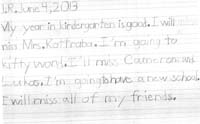 L.R. June 4, 2013
My year in kindergarten is good. I will
miss Mrs. Kottraba. I'm going to
kitty world. I'll miss Cameron and
Lukas. I'm going to have a new school.
I will miss all of my friends.